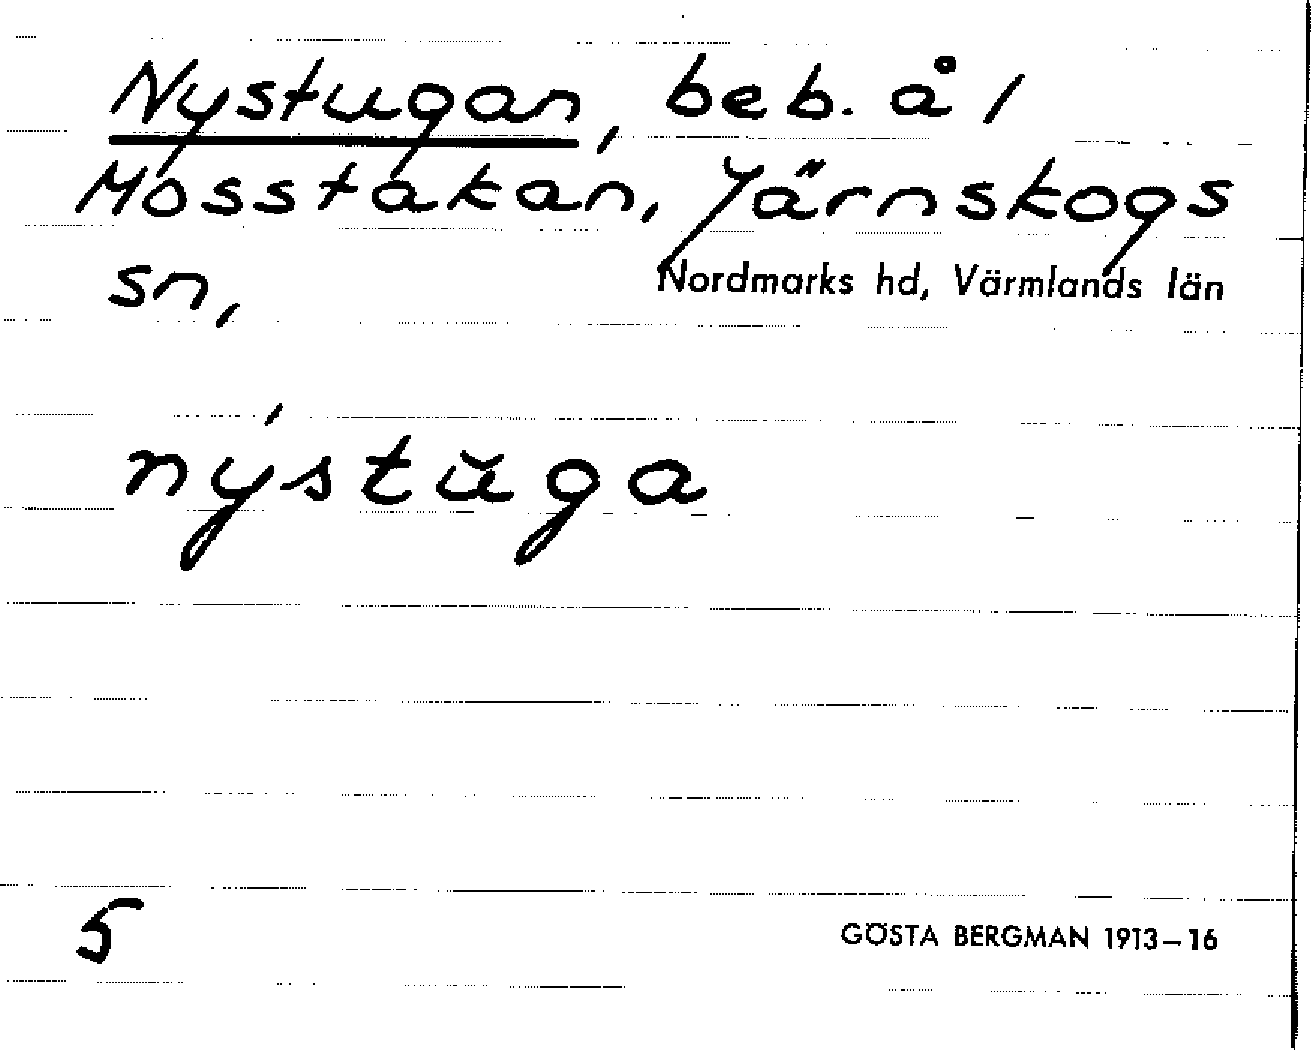 Nystugan, beb. å 1
Mosstakan, Järnskogs
sn, Nordmarks hd, Värmlands län
nýstŭga
5
GÖSTA BERGMAN 1913–16